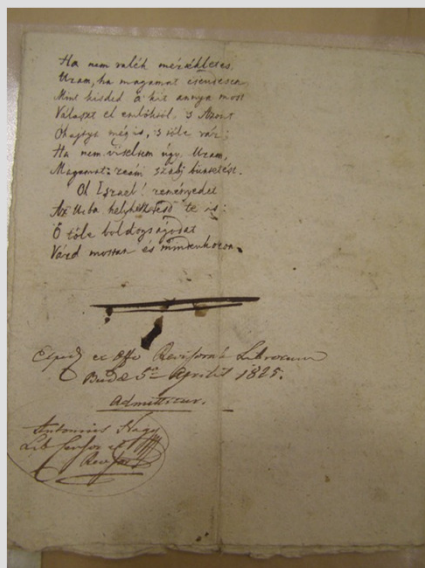 Ha nem valék mérsékletes,
Uram, ha magamat
Mint kisded a' kis annya most
Választ el emlőktől, 's
még is, 's tőle vár;
Ha nem viseltem úgy, Uram,
Magamat: reám szálj büntetést.
Ó Israel! reménységedet
Az Urba helyheztessd te is:
Ő tőle boldogságodat
Várd mostan és mindenkoron.
ex Offo Revisorat Librorum
Budæ 5a Aprilis 1825.
Admittitur.
Antonius Nagy
Lib Censor et
Revisor